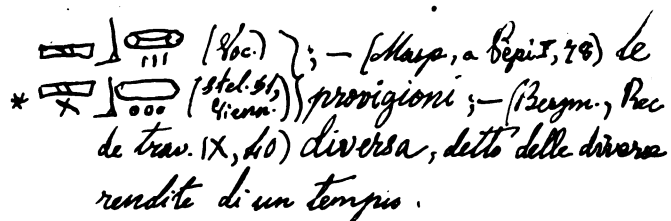 (Voc.) ; — (Masp., a Pepi I, 78) le
* (stel. 51, Vienn.) provigioni ; — (Bergm., Rec
de trav. IX, 40) diversa, detto delle diverse
rendite di un tempio.